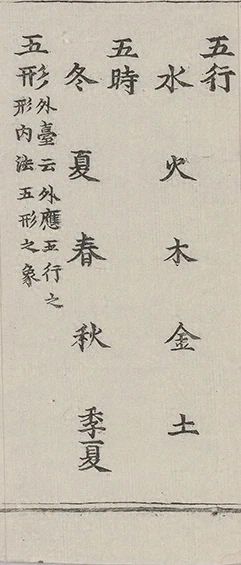 五行
水 火 木 金 土
五時
冬 夏 春 秋 季夏
五形 外臺云外應五行之
形内法五形之象